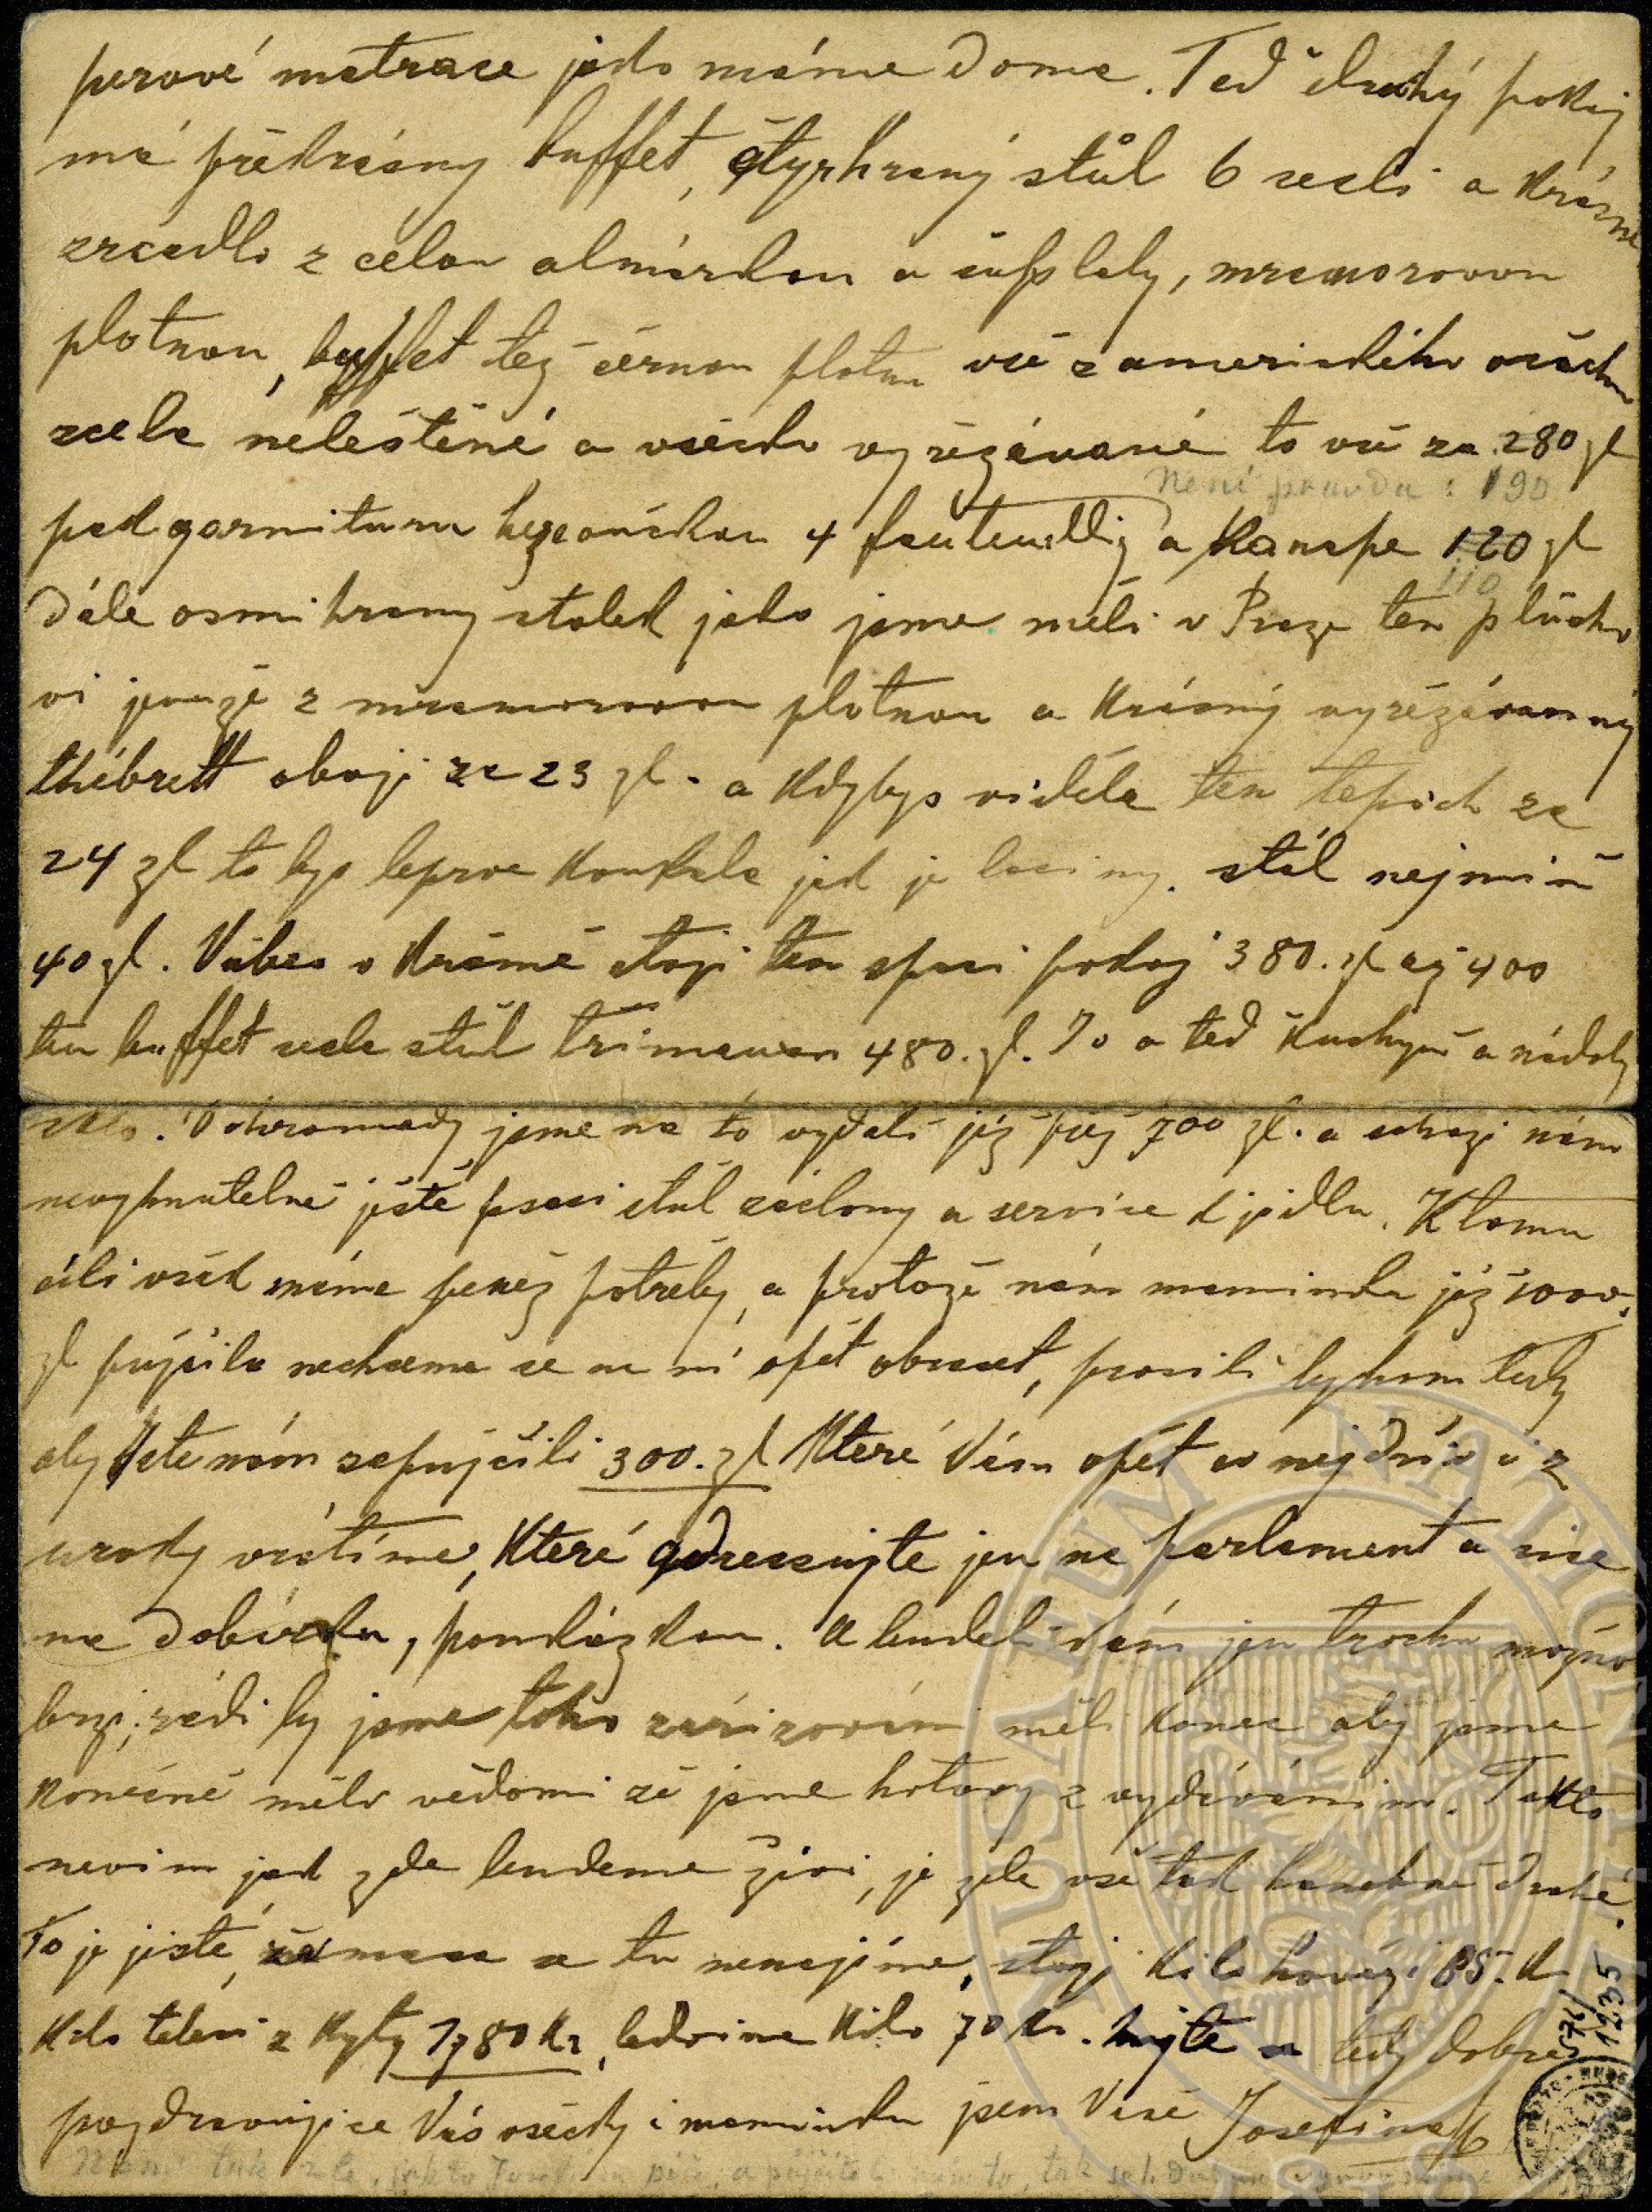 perové matrace jako máme doma. Teď druhý pokoj
má překrásny buffet, čtyrhraný stůl 6 sesli a krásné
zrcadlo z celou almárkou a šuplaty, mramorovou
plotnou, buffet tež černou plotnu vše z amerického ořechu
zcela neleštěné a všecko vyřezávané to vše za 280 zl
Není pravda: 190
pak garnituru 4 fauteully a kanape 120 zl
110
Dále osmihrany stolek jako jsme měli v Praze ten plücho
vi jenže z mramorovou plotnou a krásný vyřezávanný
thébrett oboji za 23 zl. a kdybys viděla ten tepich za
24 zl to bys teprve koukala jak je laciny. stál nejmiň
40 zl. Vůbec v krámě stoji ten spaci pokoj 380. zl až 400
ten buffet sesle stůl trimeau 480. zl. Jo a teď kuchyň a nádoby
sklo. Dohromady jsme na to vydali již přes 700 zl. a schazi nám
nevyhnutelně ještě psaci stůl záclony a service k jidlu. K tomu
cíli však máme peněz potřeby, a protože nám maminka již 1000.
zl půjčila nechceme se na ní opět obracet, prosili bychom tedy
aby ste nám zapůjčili 300. zl které Vám opět co nejdřív i z
uroky vrátíme, které adressujte jen na parlament a sice
na Dobírku, poukázkou. A budeli Vám jen trochu možno
brzi, rádi by jsme toho zařizování měli konec aby jsme
konečně měli vědomi že jsme hotovy z vydáváním. Takto
nevim jak zde budeme živi, je zde vše tak hanebně drahé.
To je jisté, že masa se tu nenajíme, stoji kilo hovězi 85. k
kilo teleci z kyty 1 zl 80 kr, ledvina kilo 70 kr. Mějte se tedy dobře
pozdravujice Vás všecky i maminku jsem Vaše Josefina
Není tak zle, jak to Josefina píše, a půjčíte-li nám to, tak se
576/
1235
MUSAEUM NATIONALE
1818